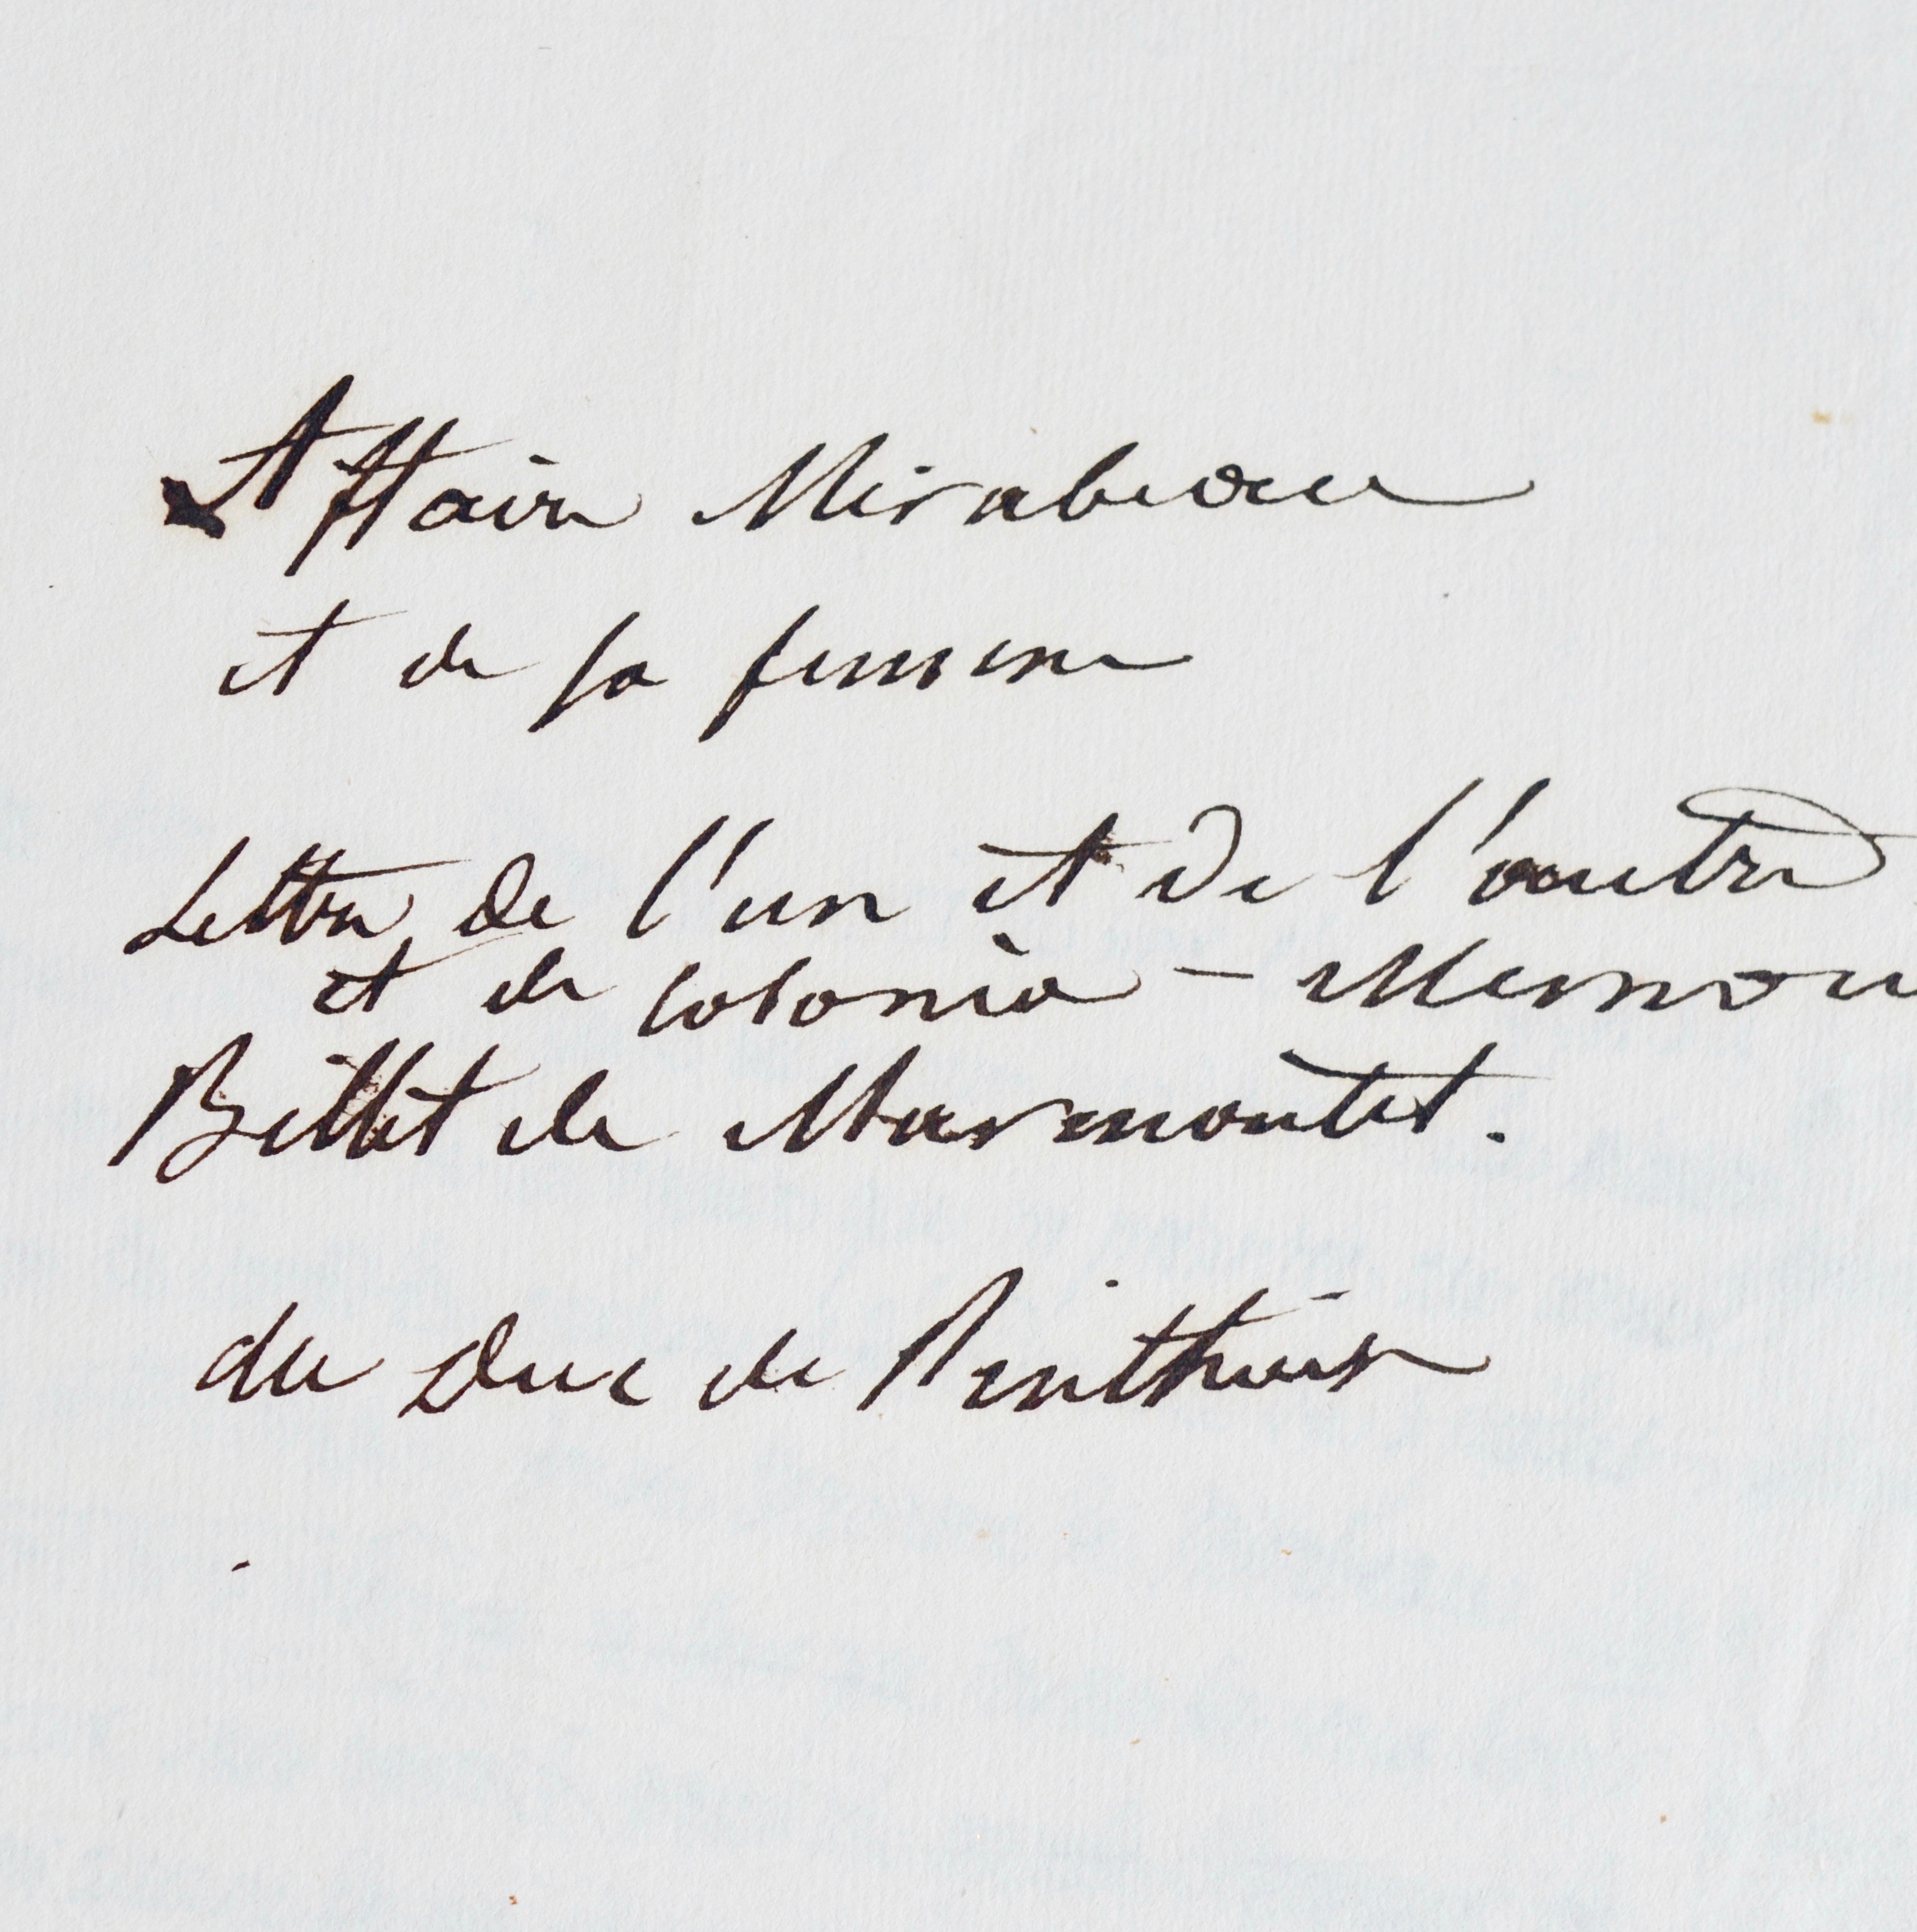 Affaire Mirabeau
et de sa femme
Lettre de l'un et de l'autre
et de Colonia – Memoi
Billet de Marmontel.
du Duc de Penthievre